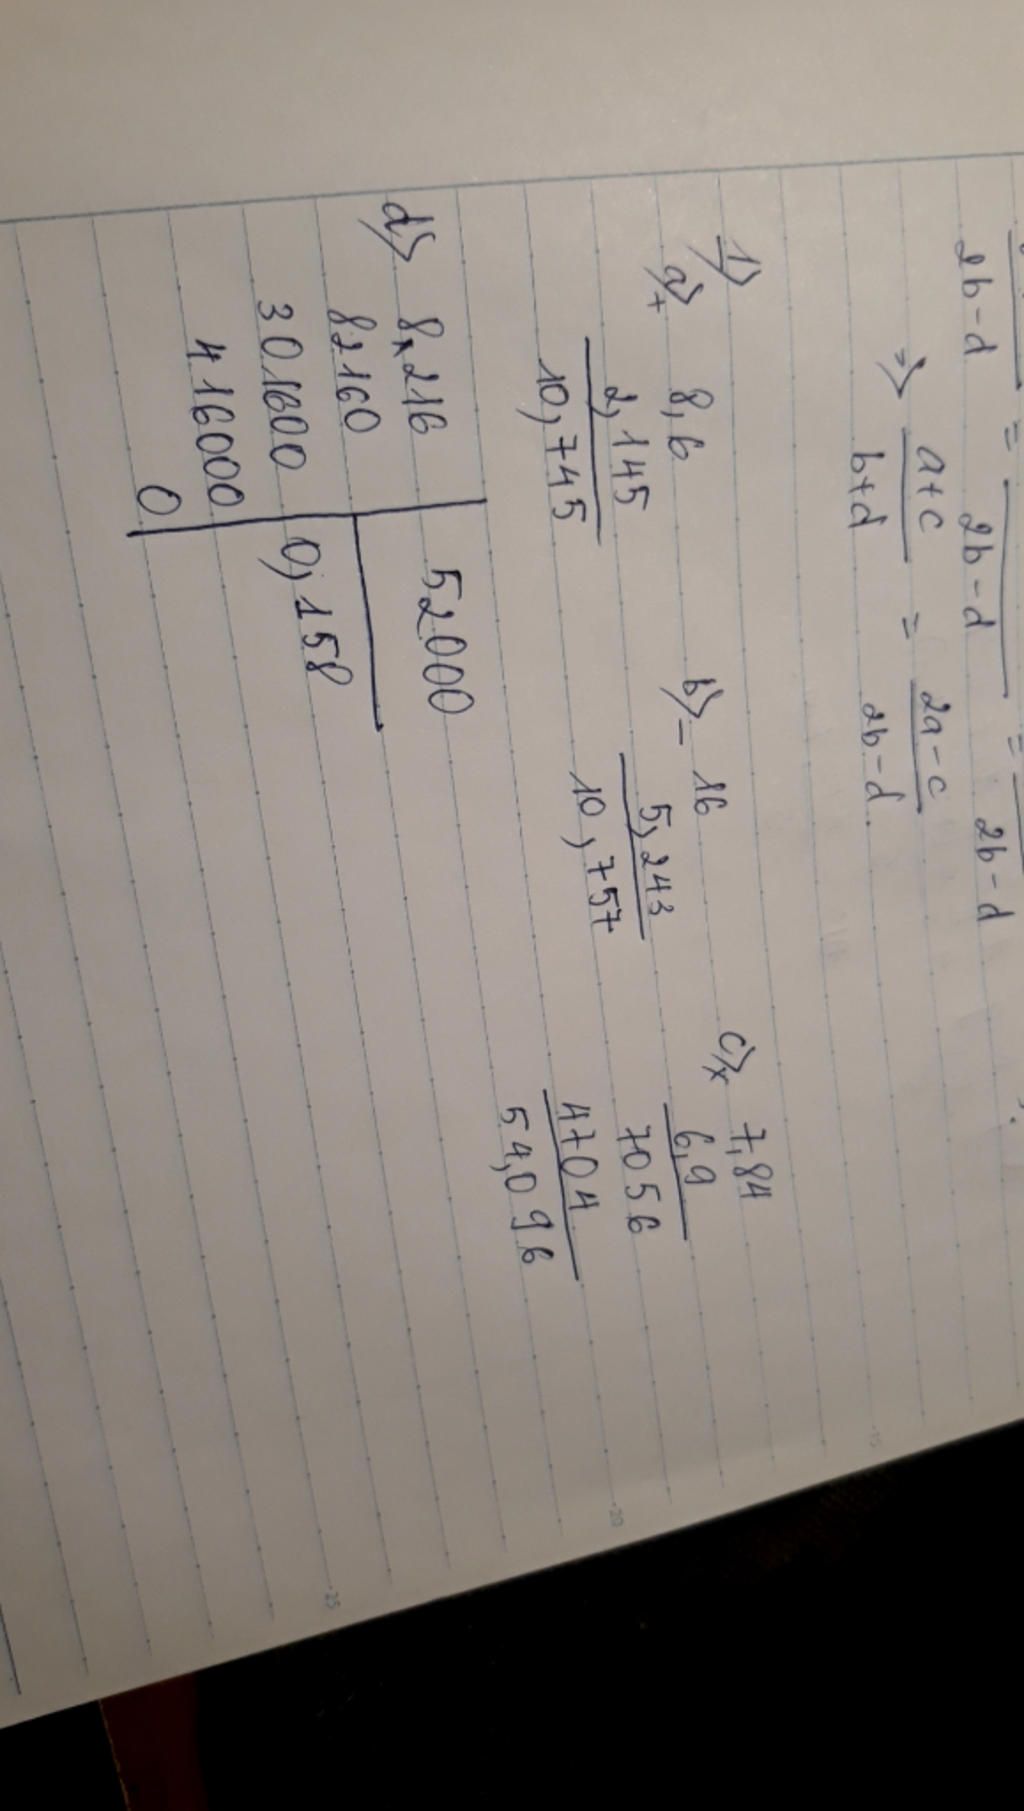 2b-d = 2b-d = 2b-d
=> a+c/b+d = 2a-c/2b-d.
1>
a> + 8,6 b> - 16 c> x 7,84
2,145 5,243 6,9
10,745 10,757 7056
4704
54,096
d> 8,216 52000
82160
301600 0,158
416000
0
15
20
25